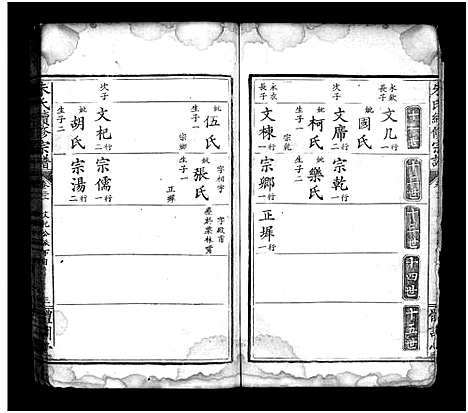 朱氏續修宗譜
十一世
十二世
十三世
十四世
十五世
永欽長子
文几 行一
妣國氏
生子二
文席 行二
宗乾 行一
妣柯氏
妣樂氏
生子一
宗乾
生子二
永衣長子
文棟 行一
宗鄉 行一
正墀 行一
妣伍氏
字相宇
字殿育
生子一
妣張氏
宗鄉
生子一
正墀
次子
文杞 行二
宗儒 行一
妣胡氏
宗湯 行二
生子二
朱氏續修宗譜
卷三